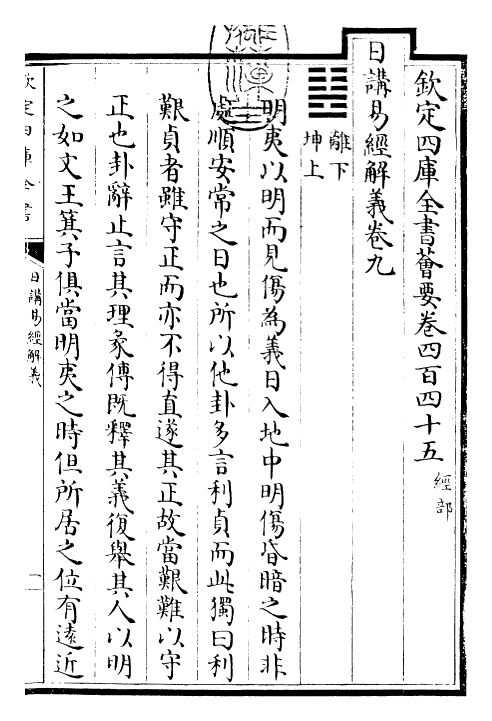 欽定四庫全書薈要卷四百四十五 經部
日講易經解義卷九
離下
坤上
明夷以明而見傷為義日入地中明傷昏暗之時非
處順安常之日也所以他卦多言利貞而此獨曰利
艱貞者雖守正而亦不得直遂其正故當艱難以守
正也卦辭止言其理彖傳既釋其義復舉其人以明
之如文王箕子俱當明夷之時但所居之位有遠近
欽定四庫全書
日講易經解義
一